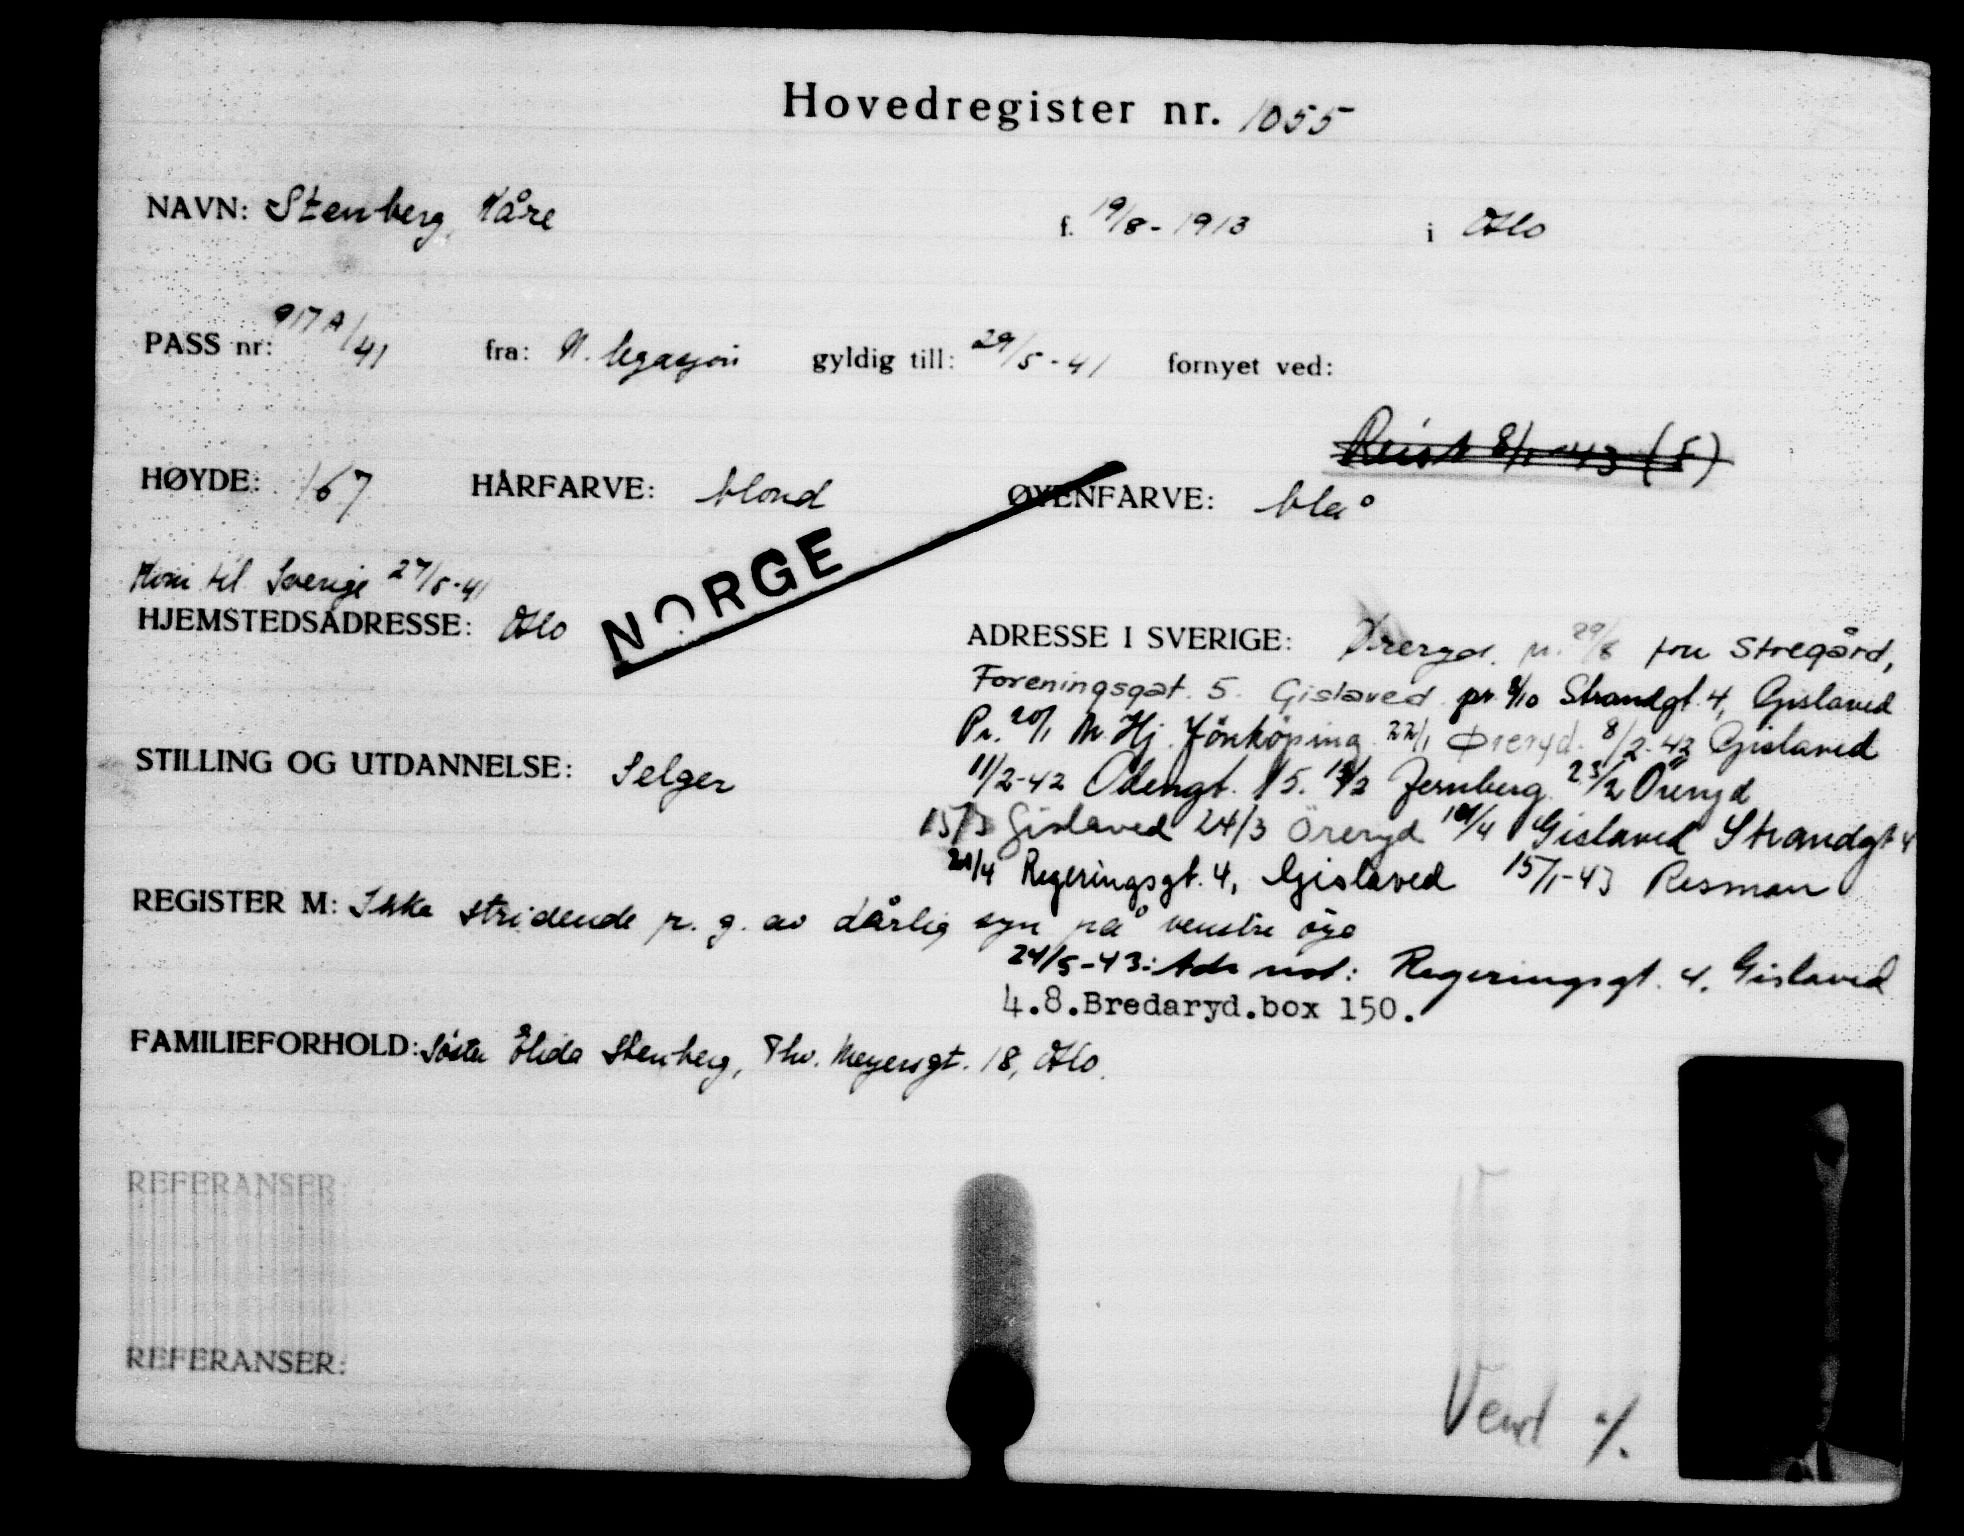 Hovedregister nr. 1055
NAVN: Stenberg, Kåre f. 19/8 - 1913 i Oslo
PASS nr: 917A/41 fra: N. legasjon gyldig till: 29/5 - 41 fornyet ved:
Reist 8/1-43 (S)
HØYDE: 167 HÅRFARVE: blond ØYENFARVE: blå
NORGE
Kom til Sverige 27/5-41
HJEMSTEDSADRESSE: Oslo
ADRESSE I SVERIGE: Øreryd. pr. 29/8 fru Stregård,
Foreningsgat. 5. Gislaved pr 8/10 Strandgt. 4, Gislaved
Pr. 20/1 M. Hj. Jönköping 22/1 Øreryd. 8/2-42 Gislaved
STILLING OG UTDANNELSE: Selger
11/2-42 Odengt. 15. Jernberg 23/2 Öreryd
15/3 Gislaved 24/3 Öreryd Gislaved Strandgt 4
21/4 Regeringsgt. 4, Gislaved 15/1-43 Resman
REGISTER M: Ikke stridende p. g. av dårlig syn på venstre øye
24/5-43: Regeringsgt. 4. Gislaved
4.8.Bredaryd.box 150.
FAMILIEFORHOLD: Søster Elida Stenberg, Thv. Meyersgt. 18, Oslo.
REFERANSER
REFERANSER:
Vend %.